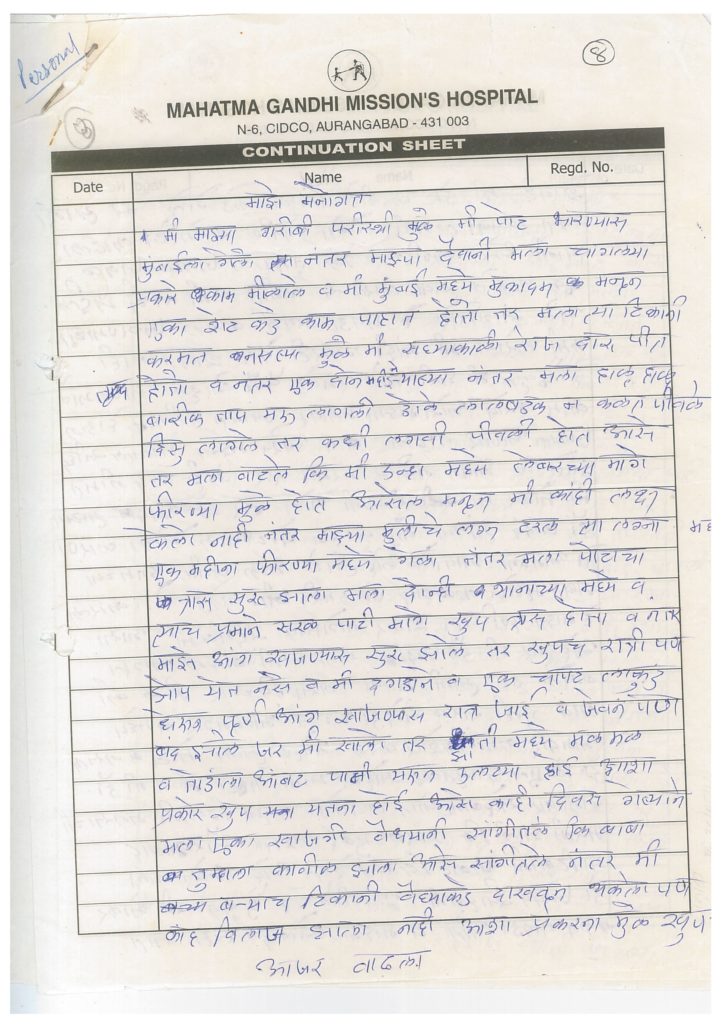 Personal
8
MAHATMA GANDHI MISSION'S HOSPITAL
N-6, CIDCO, AURANGABAD - 431 003
CONTINUATION SHEET
Date Name Regd. No.
माझे मनोगत
मी माझ्या गरीबी परीस्थी मुळे मी पोट भरण्यास
मुंबईला गेलो नंतर माझ्या दैवानी मला चागल्या
प्रकारे काम मीळाले व मी मुंबई मध्ये मुकादम मनून
एका शेट कडे काम पाहात होतो तर मला त्या टिकानी
करमत नसल्या मुळे मी सध्याकाळी रोज दारू पीत
होतो व नंतर एक दोन महीन्याच्या नंतर मला हाळू हाळू
बारीक ताप येऊ लागला डोळे लालभडक न कळत पीवळे
दिसु लागले तर कधी लगवी पीवळी होत आसे
तर मला वाटले कि मी उन्हा मध्ये लेबरच्या मागे
फीरण्या मुळे होत आसेल मनून मी कांही लक्ष
केलो नाही नंतर माझ्या मुलीचे लग्न टरले त्या लग्ना मध
एक महीना फीरण्या मध्ये गेला नंतर मला पोटाचा
त्रास सुरू झाला मला दोन्ही मध्ये व
त्याच प्रमाने सरळ पाटी मागे खुप त्रास होता व नंतर
माझे आंग खाजण्यास सुरू झाले तर खुपच रात्री पण
झोप येत नसे व मी दगडाने व एक चापट लाकुड
घेऊन पूर्ण आंग खाजण्यास रात्र जाई व जेवन पण
बंद झाले जर मी खालो तर छाती मध्ये मळमळ
व तोंडाला आंबट पाणी येऊन उलट्या होई आशा
प्रकारे खुप यतना होई आसे काही दिवस गेल्याने
मला एका खाजगी वैधमानी सांगीतले कि बाबा
तुम्हाला कावीळ झाला आसे सांगीतले नंतर मी
बऱ्याच टिकानी वैध्याकडे दाखवून थकलो पण
कांह विलाज झाला नाही आशा प्रकरना मुळे खुप
आजर वाढला